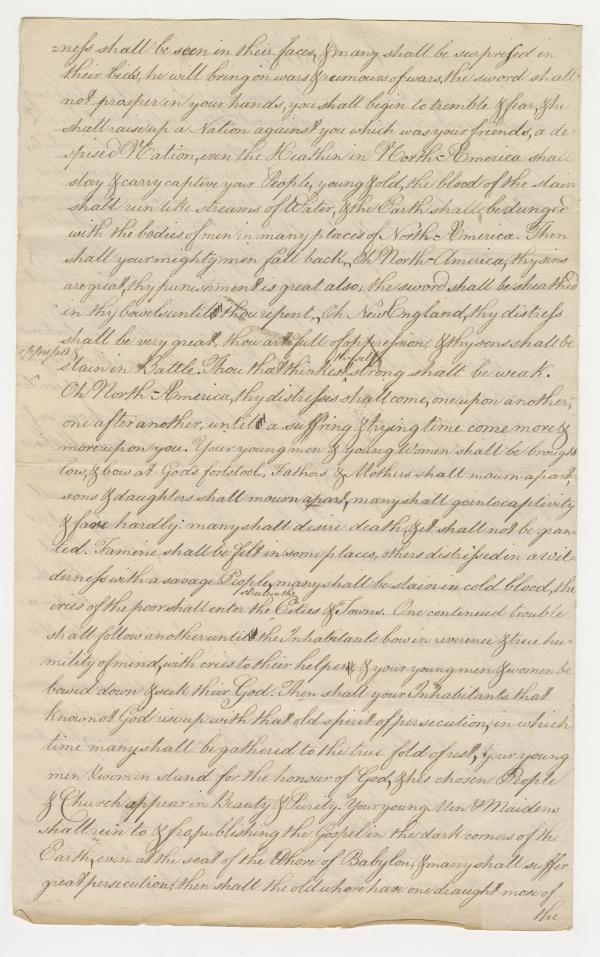 =ness shall be seen in their faces, & many shall be surprised in
their beds, he will bring on wars & rumours of wars, the sword shall
not prosper in your hands, you shall begin to tremble & fear, & he
shall raise up a Nation against you which was your friends, a de-
spised Nation, even the Heathen in North-America shall
slay & carry captive your People, young & old, the blood of the slain
shall run like streams of Water, & the Earth shall be dunged
with the bodies of men in many places of North-America. Then
shall your mighty men fall back, Oh North-America, thy sins
are great, thy punishment is great also, the sword shall be sheathed
in thy bowels until thou repent, Oh New England, thy distress
shall be very great, thou art full of oppression, & thy sons shall be
slain in Battle. Thou that thinkest thyself strong shall be weak.
Oh North-America, thy distresses shall come, one upon another,
one after another, until a suffring & trying time come more &
more upon you. Your young men & young Women shall be brought
low, & bow at Gods footstool, Fathers & Mothers shall mourn apart,
sons & daughters shall mourn apart, many shall go into captivity
& fare hardly: many shall desire death, & it shall not be gran-
ted. Famine shall be felt in some places, others distressed in a wil-
derness with a savage People, many shall be slain in cold blood, the
cries of the poor shall enter the Cities & Towns. One continued trouble
shall follow another until the Inhabitants bow in reverence & true hu-
mility of mind, with cries to their helper, & your young men & women be
bowed down & seek their God. Then shall your Inhabitants that
know not God rise up with that old spirit of persecution, in which
time many shall be gathered to the true fold of rest, & your young
men & women stand for the honour of God, & his chosen People
& Church appear in Beauty & Purity. Your young Men & Maidens
shall run to & fro, publishing the Gospel in the dark corners of the
Earth, even at the seat of the Whore of Babylon, & many shall suffer
great persecution, then shall the old whore have one draught more of
the